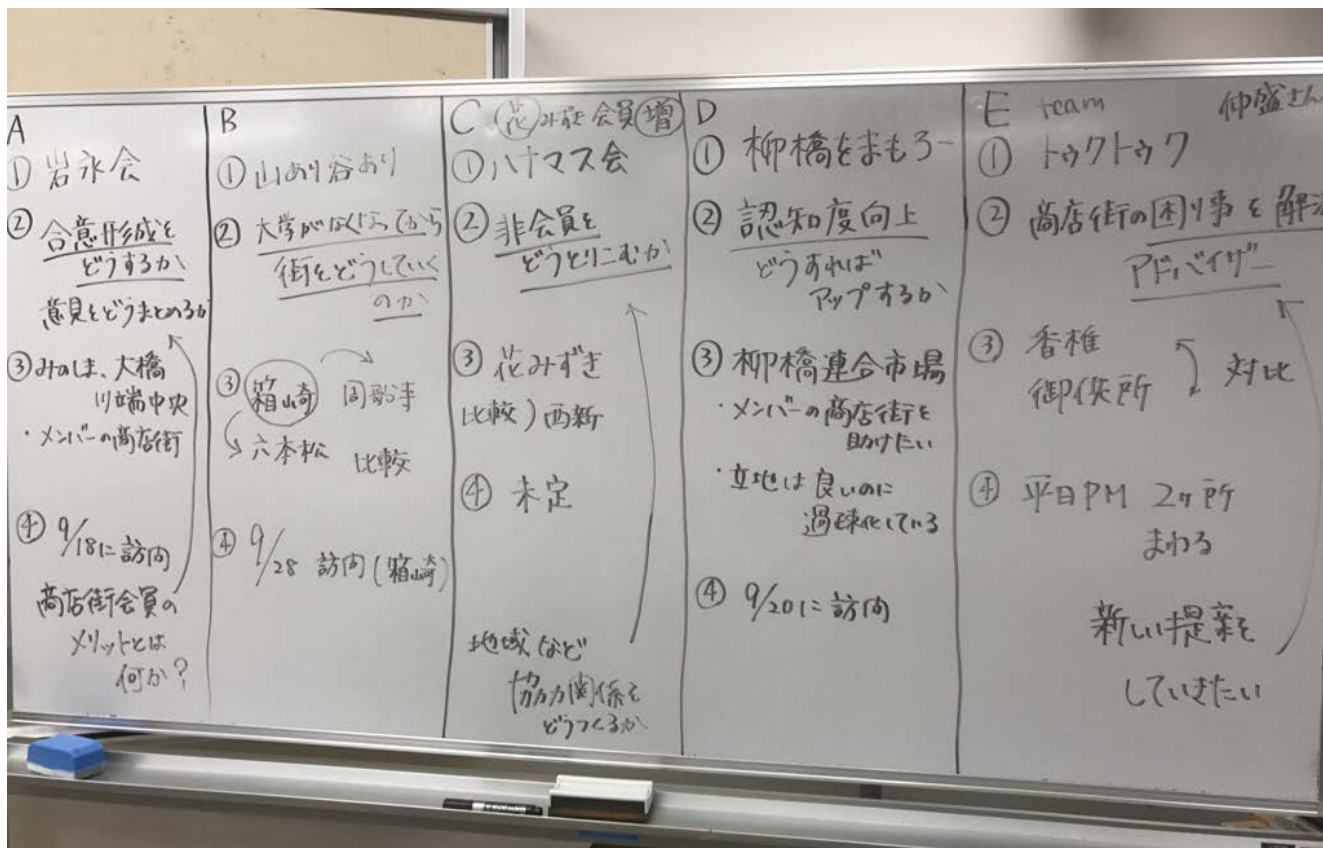 A
① 岩永会
② 合意形成を
どうするか
意見をどうまとめるか
③ みのしま、大橋
川端中央
・メンバーの商店街
④ 9/18に訪問
商店街会員の
メリットとは
何か？
B
① 山あり谷あり
② 大学がなくなってから
街をどうしていく
のか
③ 箱崎 周船寺
六本松 比較
④ 9/28 訪問(箱崎)
C 花みずき会員増
① ハナマス会
② 非会員を
どうとりこむか
③ 花みずき
比較)西新
④ 未定
地域など
協力関係を
どうつくるか
D
① 柳橋をまもろー
② 認知度向上
どうすれば
アップするか
③ 柳橋連合市場
・メンバーの商店街を
助けたい
・立地は良いのに
過疎化している
④ 9/20に訪問
E team 仲盛さん
① トゥクトゥク
② 商店街の困り事を解決
アドバイザー
③ 香椎
御供所 対比
④ 平日PM 2ヶ所
まわる
新しい提案を
していきたい